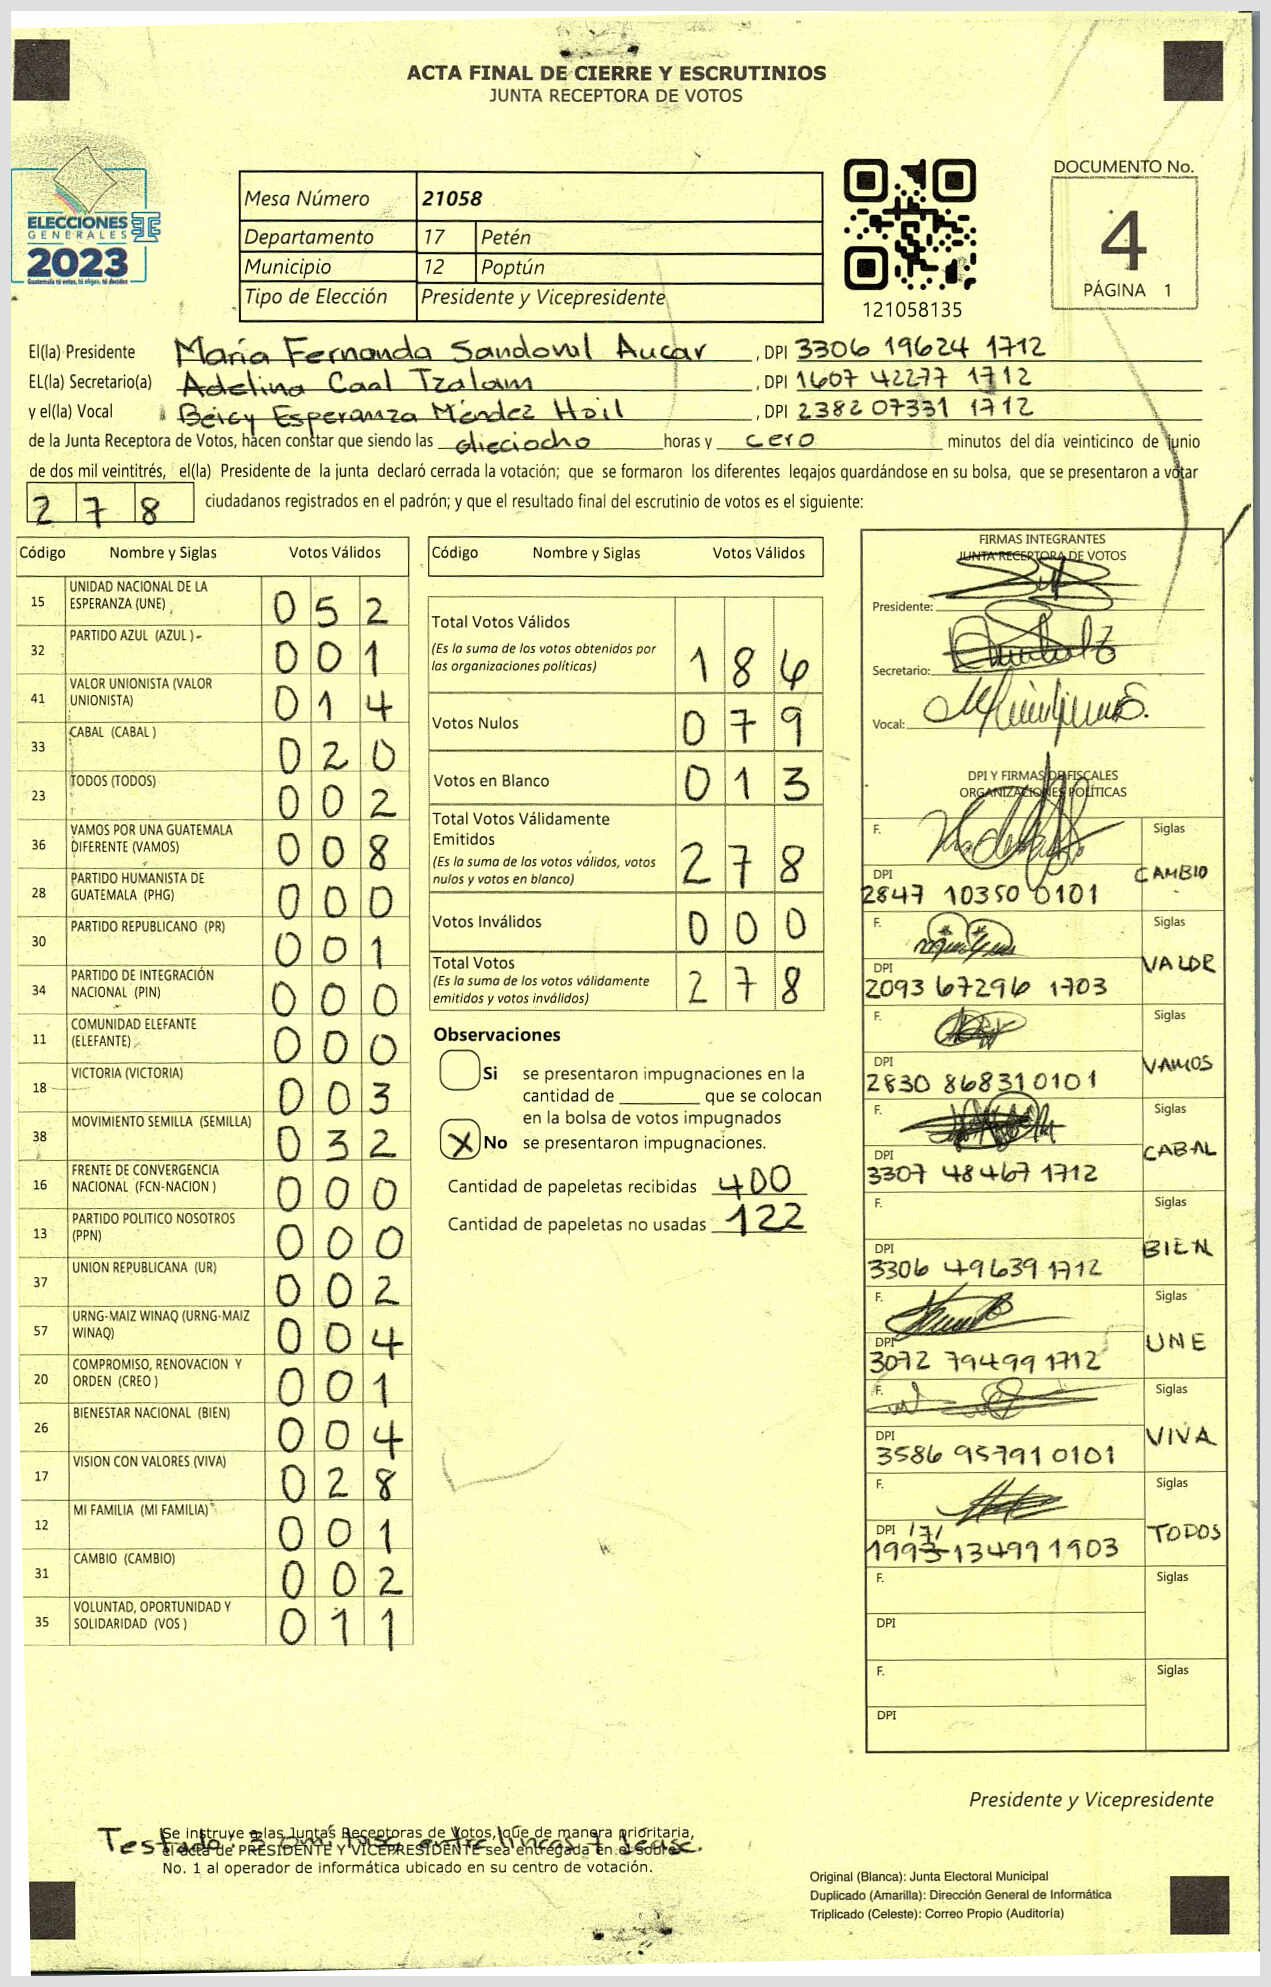 ACTA FINAL DE CIERRE Y ESCRUTINIOS
JUNTA RECEPTORA DE VOTOS
ELECCIONES
GENERALES
2023
Guatemala tú votas, tú eliges, tú decides
Mesa Número 21058
Departamento 17 Petén
Municipio 12 Poptún
Tipo de Elección Presidente y Vicepresidente
121058135
DOCUMENTO No.
4
PÁGINA 1
El(la) Presidente María Fernanda Sandoval Aucar , DPI 3306 19624 1712
EL(la) Secretario(a) Adelina Caal Tzalam , DPI 1607 42277 1712
y el(la) Vocal Beicy Esperanza Méndez Hoil , DPI 2382 07331 1712
de la Junta Receptora de Votos, hacen constar que siendo las dieciocho horas y cero minutos del día veinticinco de junio
de dos mil veintitrés, el(la) Presidente de la junta declaró cerrada la votación; que se formaron los diferentes legajos guardándose en su bolsa, que se presentaron a votar
278 ciudadanos registrados en el padrón; y que el resultado final del escrutinio de votos es el siguiente:
Código Nombre y Siglas Votos Válidos
15 UNIDAD NACIONAL DE LA ESPERANZA (UNE) 052
32 PARTIDO AZUL (AZUL) 001
41 VALOR UNIONISTA (VALOR UNIONISTA) 014
33 CABAL (CABAL ) 020
23 TODOS (TODOS) 002
36 VAMOS POR UNA GUATEMALA DIFERENTE (VAMOS) 008
28 PARTIDO HUMANISTA DE GUATEMALA (PHG) 000
30 PARTIDO REPUBLICANO (PR) 001
34 PARTIDO DE INTEGRACIÓN NACIONAL (PIN) 000
11 COMUNIDAD ELEFANTE (ELEFANTE) 000
18 VICTORIA (VICTORIA) 003
38 MOVIMIENTO SEMILLA (SEMILLA) 032
16 FRENTE DE CONVERGENCIA NACIONAL (FCN-NACION ) 000
13 PARTIDO POLITICO NOSOTROS (PPN) 000
37 UNION REPUBLICANA (UR) 002
57 URNG-MAIZ WINAQ (URNG-MAIZ WINAQ) 004
20 COMPROMISO, RENOVACION Y ORDEN (CREO ) 001
26 BIENESTAR NACIONAL (BIEN) 004
17 VISION CON VALORES (VIVA) 028
12 MI FAMILIA (MI FAMILIA) 001
31 CAMBIO (CAMBIO) 002
35 VOLUNTAD, OPORTUNIDAD Y SOLIDARIDAD (VOS ) 011
Código Nombre y Siglas Votos Válidos
Total Votos Válidos
(Es la suma de los votos obtenidos por
las organizaciones políticas) 186
Votos Nulos 079
Votos en Blanco 013
Total Votos Válidamente
Emitidos
(Es la suma de los votos válidos, votos
nulos y votos en blanco) 278
Votos Inválidos 000
Total Votos
(Es la suma de los votos válidamente
emitidos y votos inválidos) 278
Observaciones
Si se presentaron impugnaciones en la
cantidad de ________ que se colocan
en la bolsa de votos impugnados
X No se presentaron impugnaciones.
Cantidad de papeletas recibidas 400
Cantidad de papeletas no usadas 122
FIRMAS INTEGRANTES
JUNTA RECEPTORA DE VOTOS
Presidente:
Secretario:
Vocal:
DPI Y FIRMAS DE FISCALES
ORGANIZACIONES POLÍTICAS
F. Siglas
DPI CAMBIO
2847 10350 0101
F. Siglas
DPI VALOR
2093 67296 1703
F. Siglas
DPI VAMOS
2830 86831 0101
F. Siglas
DPI CABAL
3307 48467 1712
F. Siglas
DPI BIEN
3306 49639 1712
F. Siglas
DPI UNE
3072 79499 1712
F. Siglas
DPI VIVA
3586 95791 0101
F. Siglas
DPI 171 TODOS
1993 13499 1903
F. Siglas
DPI
F. Siglas
DPI
Presidente y Vicepresidente
Testado: 3 entre lineas 7 Lease.
Se instruye a las Juntas Receptoras de Votos, que de manera prioritaria,
el acta de PRESIDENTE Y VICEPRESIDENTE sea entregada en el sobre
No. 1 al operador de informática ubicado en su centro de votación.
Original (Blanca): Junta Electoral Municipal
Duplicado (Amarilla): Dirección General de Informática
Triplicado (Celeste): Correo Propio (Auditoría)